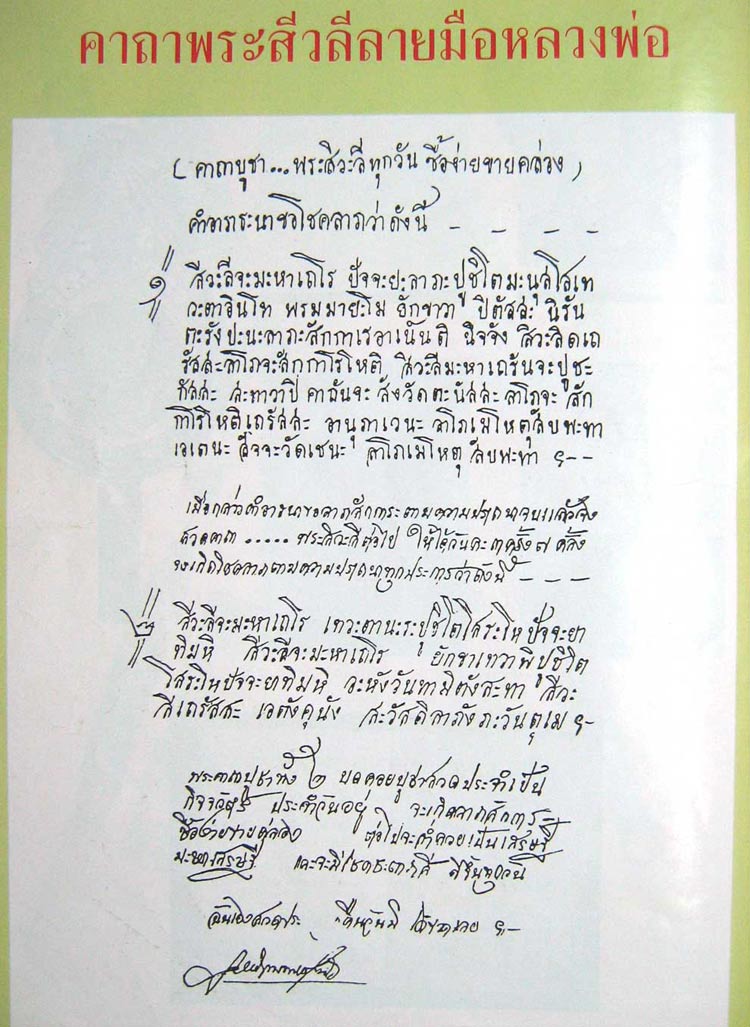 คาถาพระสีวลีลายมือหลวงพ่อ
(คาถาบูชา...พระสีวะลีทุกวัน ซื้อง่ายขายคล่อง)
คำอาราธนาขอโชคลาภว่าดังนี้ - - - -
๑ สีวะลีจะมะหาเถโร ปัจจะยะลาภะปูชิโตมะนุสโสเท
วะตาอินโท พรมมายะโม ยักขาวา ปิตัสสะ นิรัน
ตะรังปะนะลาภะสักกาเรอาเนันติ นิจจัง สีวะลิดเถ
รัสสะลาโภจะสักกาโรโหติ สีวะลีมะหาเถรันจะปูชะ
กัสสะ สะทาวาปิ คาถันจะ สังวัดตะนัสสะ ลาโภจะ สัก
กาโรโหติเถรัสสะ อานุภาเวนะ ลาโภเมโหตุสับพะทา
เอเตนะ สัจจะวัดเชนะ ลาโภเมโหตุ สับพะทา ฯ--
เมื่อกล่าวคำอาราธนาขอลาภสักการะตามความปรารถนาจบแล้วจึง
สวดคาถา ..... พระสีวะลีต่อไป ให้ได้วันละ ๓ ครั้ง ๗ ครั้ง
จะเกิดโชคลาภตามความปรารถนาทุกประการว่าดังนี้ - - - -
๒ สีวะลีจะมะหาเถโร เทวะตานะระปูชิโตโสระโหปัจจะยา
ทิมหิ สีวะลีจะมะหาเถโร ยักขาเทวาพิปูชิโต
โสระโหปัจจะยาทิมหิ อะหังวันทามิตังสะทา สีวะ
ลีเถรัสสะ เอตังคุนัง สะวัสดิลาภังภะวันตุเม ฯ-
พระคาถาบูชาทั้ง ๒ บท คอยบูชาสวดประจำเป็น
กิจจวัตร ประจำวันอยู่ จะเกิดลาภสักการะ
ซื้อง่ายขายคล่อง ต่อไปจะร่ำรวยเป็นเศรษฐี
มะหาเศรษฐี และจะมีโชคชะตาดี ดีขึ้นทุกวัน